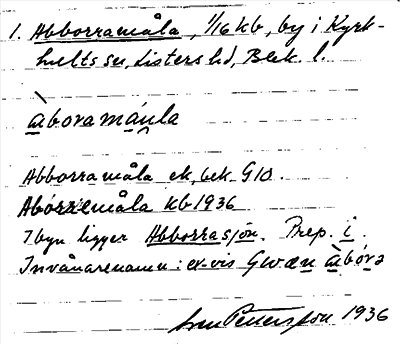 1. Abborramåla, 1/16 kb, by i Kyrk-
hults sn, Listers hd, Blek. l.
àboramåula
Abborramåla ek, bek G10.
Abórremåla kb 1936
I byn ligger Abborrasjön. Prep. i.
Invånarenamn: ex-vis Gwæn àbóra
Sven Pettersson 1936